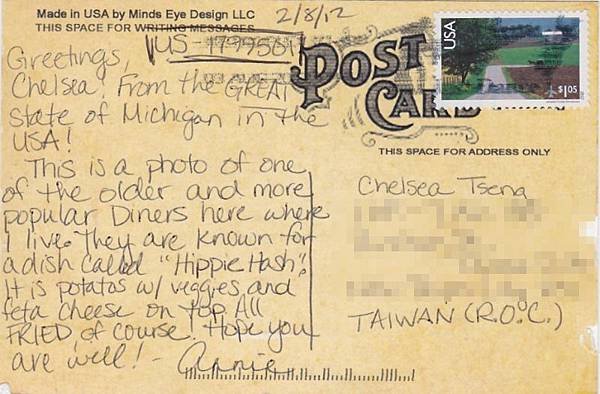 Made in USA by Minds Eye Design LLC
THIS SPACE FOR WRITING MESSAGES
2/8/12
US-1799501
Greetings,
Chelsea! From the GREAT
state of Michigan in the
USA!
This is a photo of one
of the older and more
popular Diners here where
I live. They are known for
a dish called "Hippie Hash".
It is potatos w/ veggies and
feta cheese on top. All
FRIED of course! Hope you
are well! - Annie
POST
CARD
USA
$1.05
THIS SPACE FOR ADDRESS ONLY
Chelsea Tseng
TAIWAN (R.O.C.)